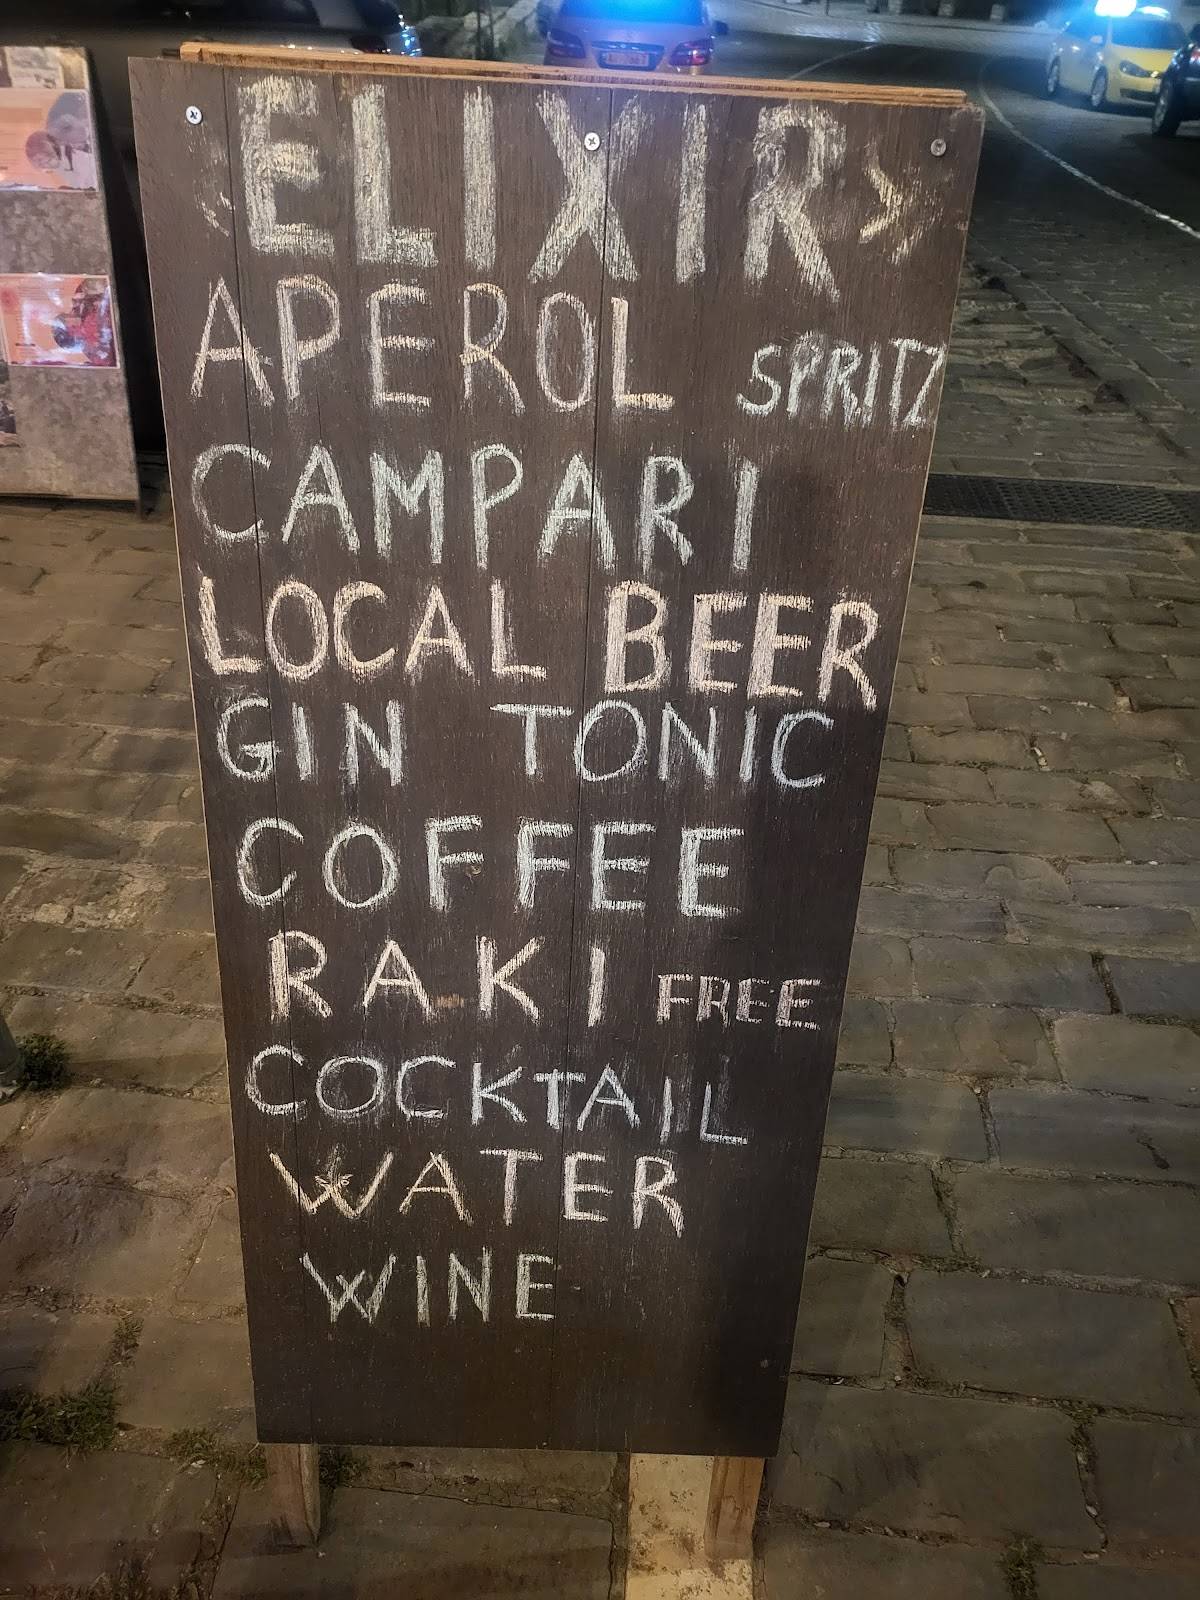 <ELIXIR>
APEROL SPRITZ
CAMPARI
LOCAL BEER
GIN TONIC
COFFEE
RAKI FREE
COCKTAIL
WATER
WINE